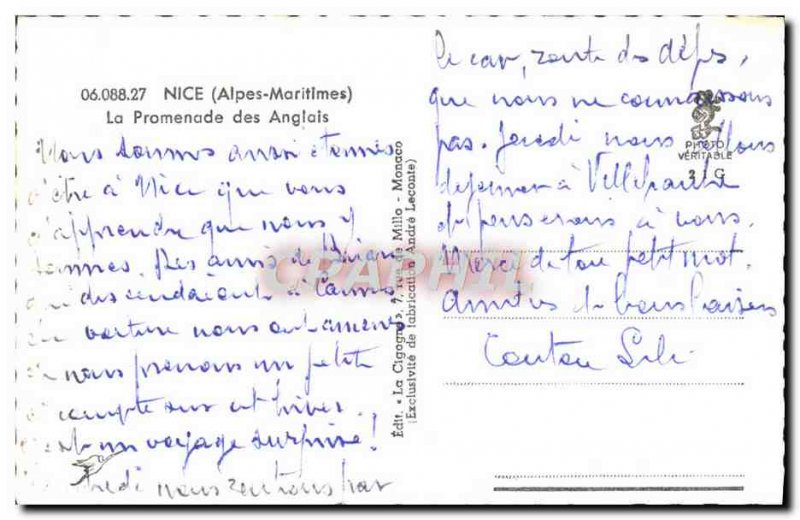 06.088.27 NICE (Alpes-Maritimes)
La Promenade des Anglais
Nous sommes aussi étonnés
d'être à Nice que vous
d'apprendre que nous y
sommes. Des amis de
qui descendaient à Cannes
en voiture nous ont amenés
et nous prenons un petit
acompte sur cet hiver.
C'est un voyage surprise!
nous rentrons par
le car, route des Alpes,
que nous ne connaissons
pas. Jeudi nous allons
déjeuner à Villefranche
et penserons à vous.
Merci de ton petit mot.
Amitiés et bons baisers
Tonton
Édit. « La Cigogne », 7, rue de Millo - Monaco
(Exclusivité de fabrication André Leconte)
PHOTO
VÉRITABLE
CRAPHIL